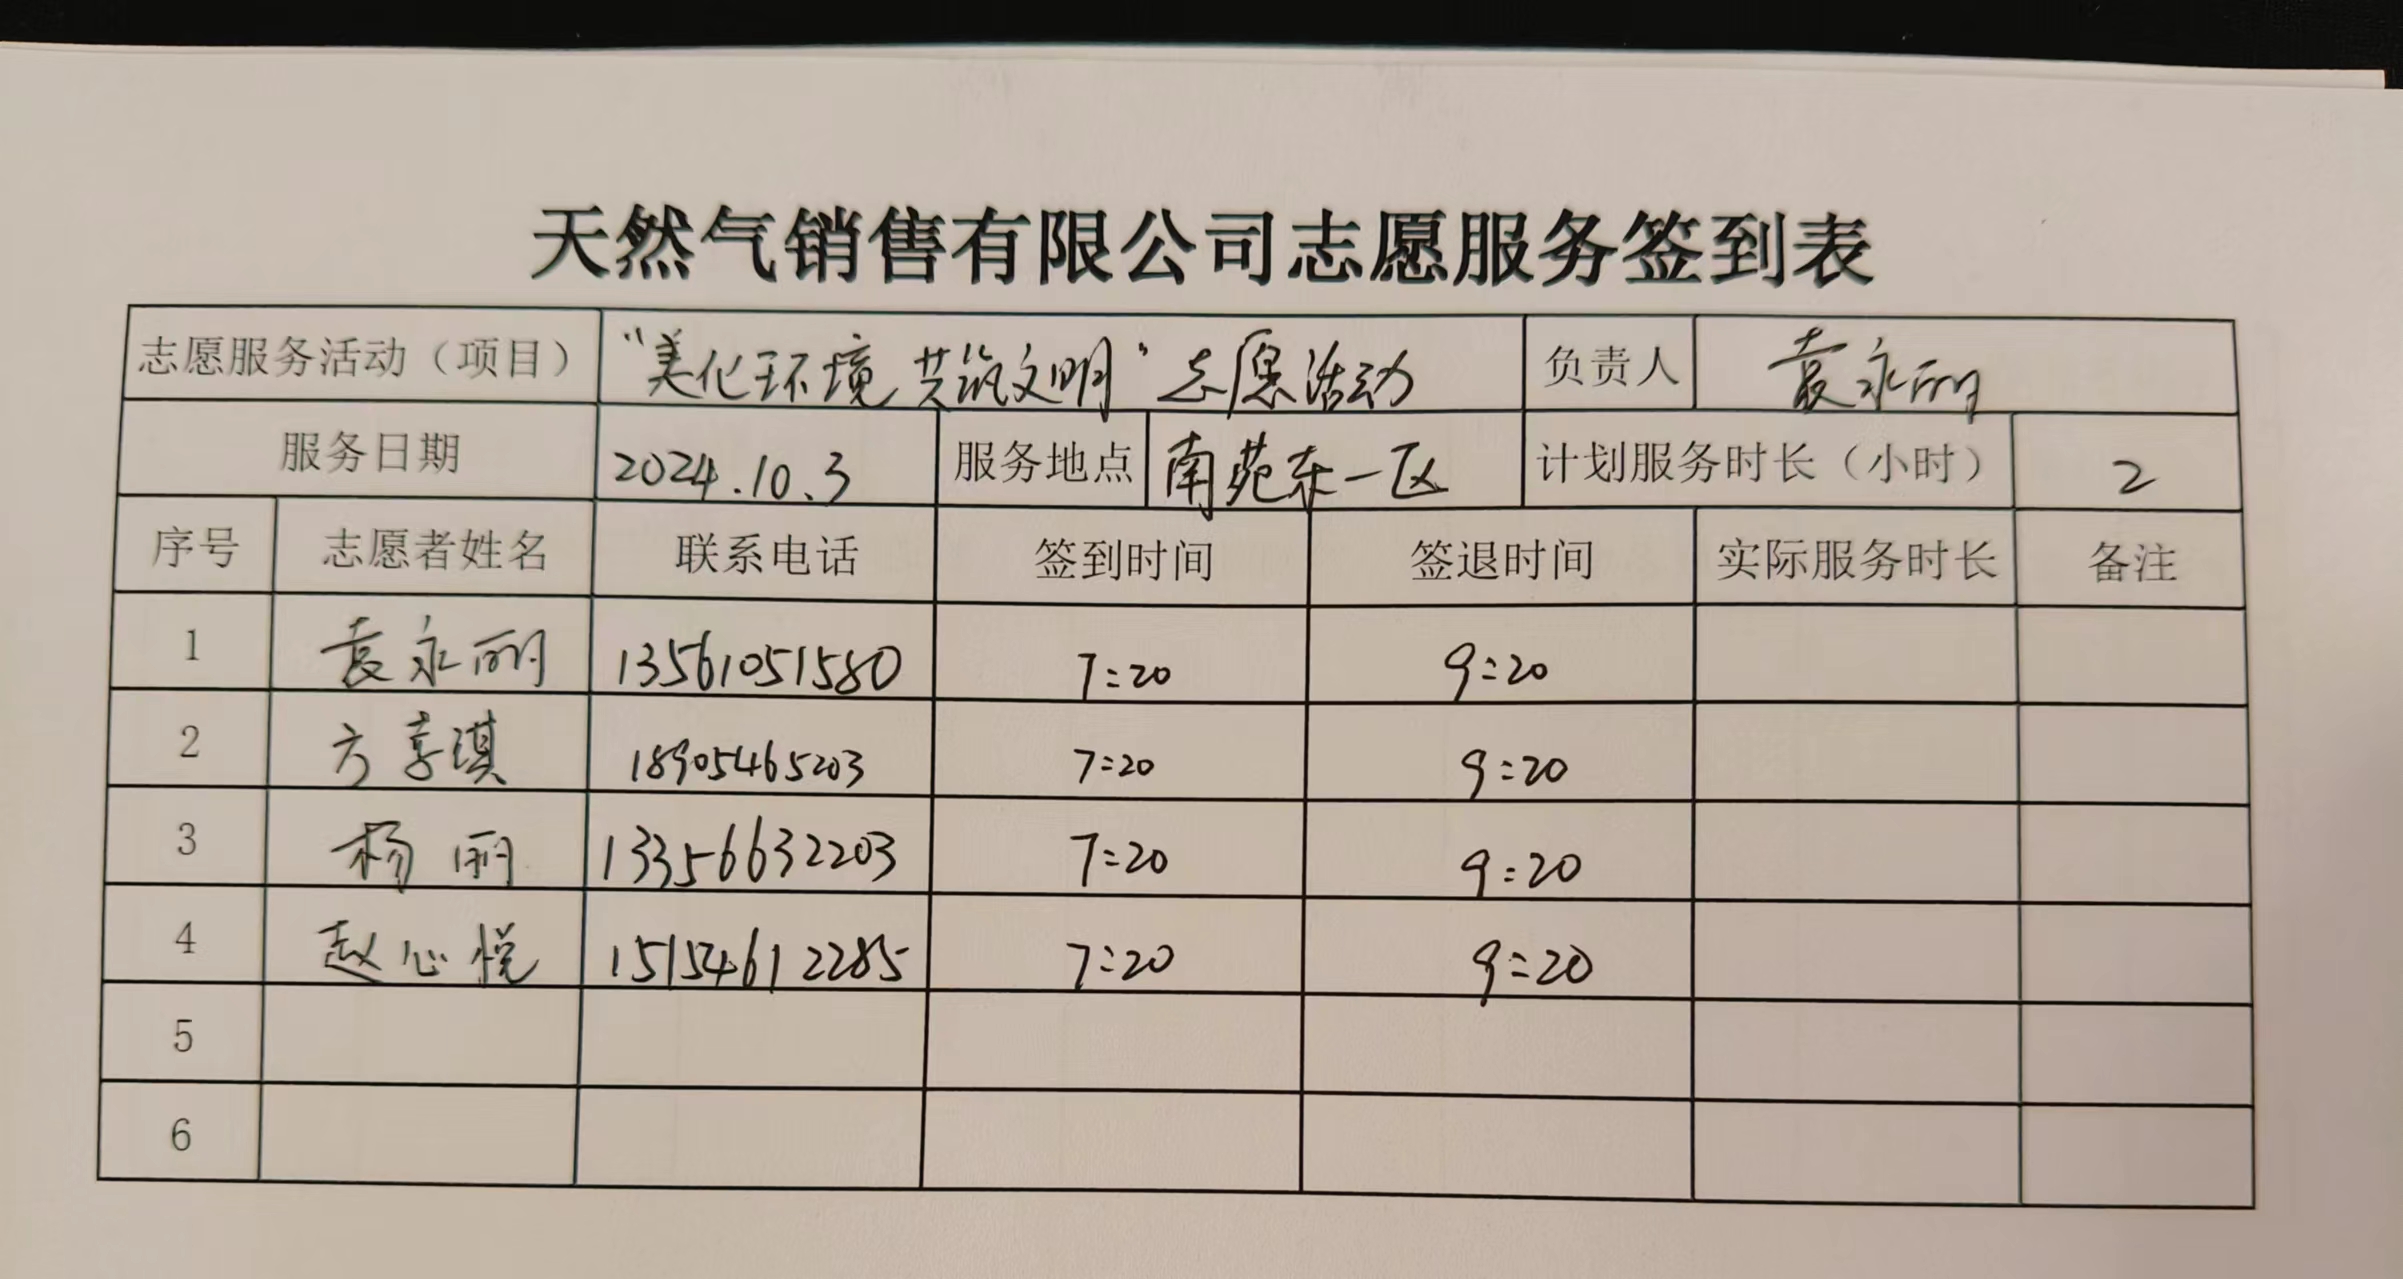 天然气销售有限公司志愿服务签到表
志愿服务活动（项目） “美化环境 共筑文明”志愿活动 负责人 袁永丽
服务日期 2024.10.3 服务地点 南苑东一区 计划服务时长（小时） 2
序号 志愿者姓名 联系电话 签到时间 签退时间 实际服务时长 备注
1 袁永丽 13561051580 7:20 9:20
2 方 琪 18905465203 7:20 9:20
3 杨丽 13356632203 7:20 9:20
4 赵心悦 15154612285 7:20 9:20
5
6